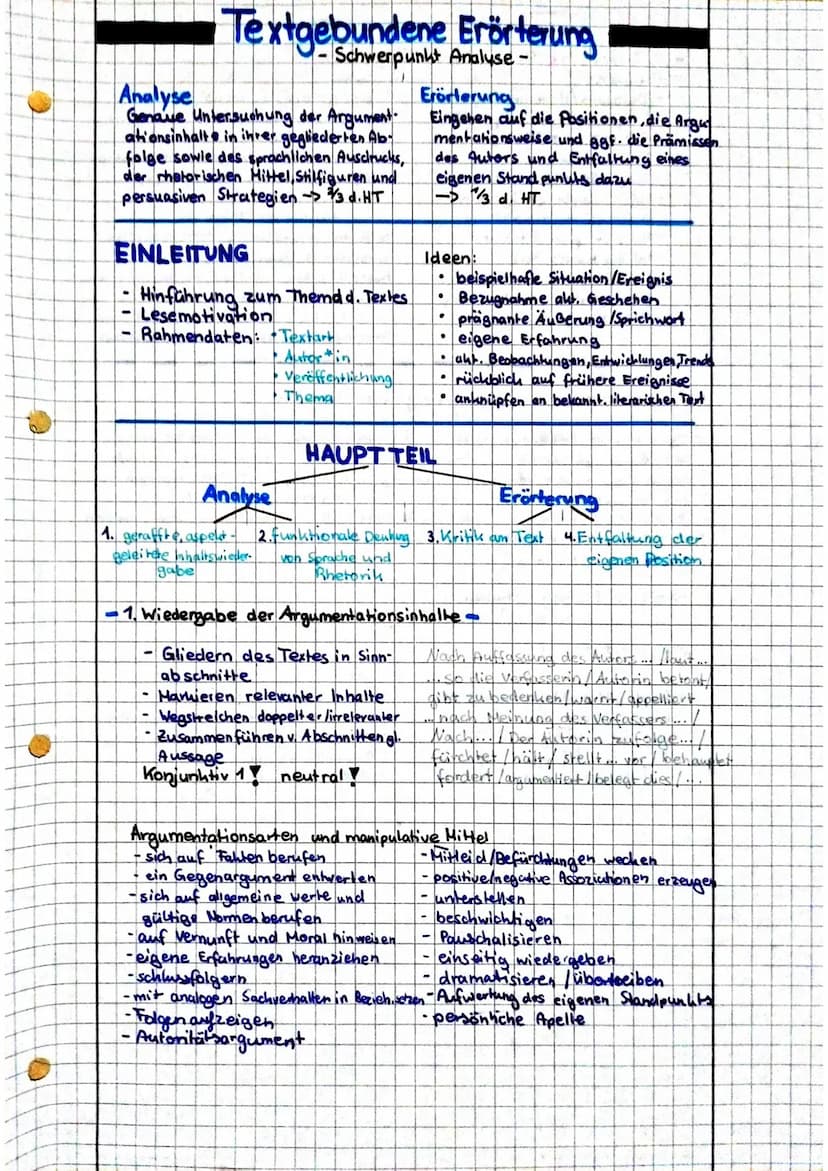 Textgebundene Erörterung
- Schwerpunkt Analyse -
Analyse
Genaue Untersuchung der Argument-
ationsinhalte in ihrer gegliederten Ab-
folge sowie des sprachlichen Ausdrucks,
der rhetorischen Mittel, Stilfiguren und
persuasiven Strategien -> 2/3 d. HT
Erörterung
Eingehen auf die Positionen, die Argu
mentationsweise und ggf. die Prämissen
des Autors und Entfaltung eines
eigenen Standpunkts dazu
-> 1/3 d. HT
EINLEITUNG
- Hinführung zum Thema d. Textes
- Lesemotivation
- Rahmendaten: • Textart
• Autor*in
• Veröffentlichung
• Thema
Ideen:
• beispielhafte Situation/Ereignis
• Bezugnahme akt. Geschehen
• prägnante Äußerung/Sprichwort
• eigene Erfahrung
• akt. Beobachtungen, Entwicklungen, Trends
• rückblick auf frühere Ereignisse
• anknüpfen an bekannt. literarischen Text
HAUPTTEIL
Analyse
Erörterung
1. geraffte, aspekt-
geleitete Inhaltswieder-
gabe
2. funktionale Deutung
von Sprache und
Rhetorik
3. Kritik am Text
4. Entfaltung der
eigenen Position
- 1. Wiedergabe der Argumentationsinhalte -
- Gliedern des Textes in Sinn-
abschnitte
- Markieren relevanter Inhalte
- Wegstreichen doppelter/irrelevanter
- Zusammenführen v. Abschnitten gl.
Aussage
Konjunktiv 1! neutral!
Nach Auffassung des Autors ... /laut...
...so die Verfasserin/Autorin betont/
gibt zu bedenken/warnt/appelliert
... nach Meinung des Verfassers ... /
Nach.../Der Autorin zufolge.../
fürchtet/hält/stellt... vor/behauptet
fordert/argumentiert/belegt dies/...
Argumentationsarten und manipulative Mittel
- sich auf Fakten berufen
- ein Gegenargument entwerten
- sich auf allgemeine Werte und
gültige Normen berufen
- auf Vernunft und Moral hinweisen
- eigene Erfahrungen heranziehen
- schlussfolgern
- mit analogen Sachverhalten in Bezieh. setzen
- Folgen aufzeigen
- Autoritätsargument
- Mitleid/Befürchtungen wecken
- positive/negative Assoziationen erzeugen
- unterstellen
- beschwichtigen
- Pauschalisieren
- einseitig wiedergeben
- dramatisieren/übertreiben
- Aufwertung des eigenen Standpunkts
- persönliche Apelle